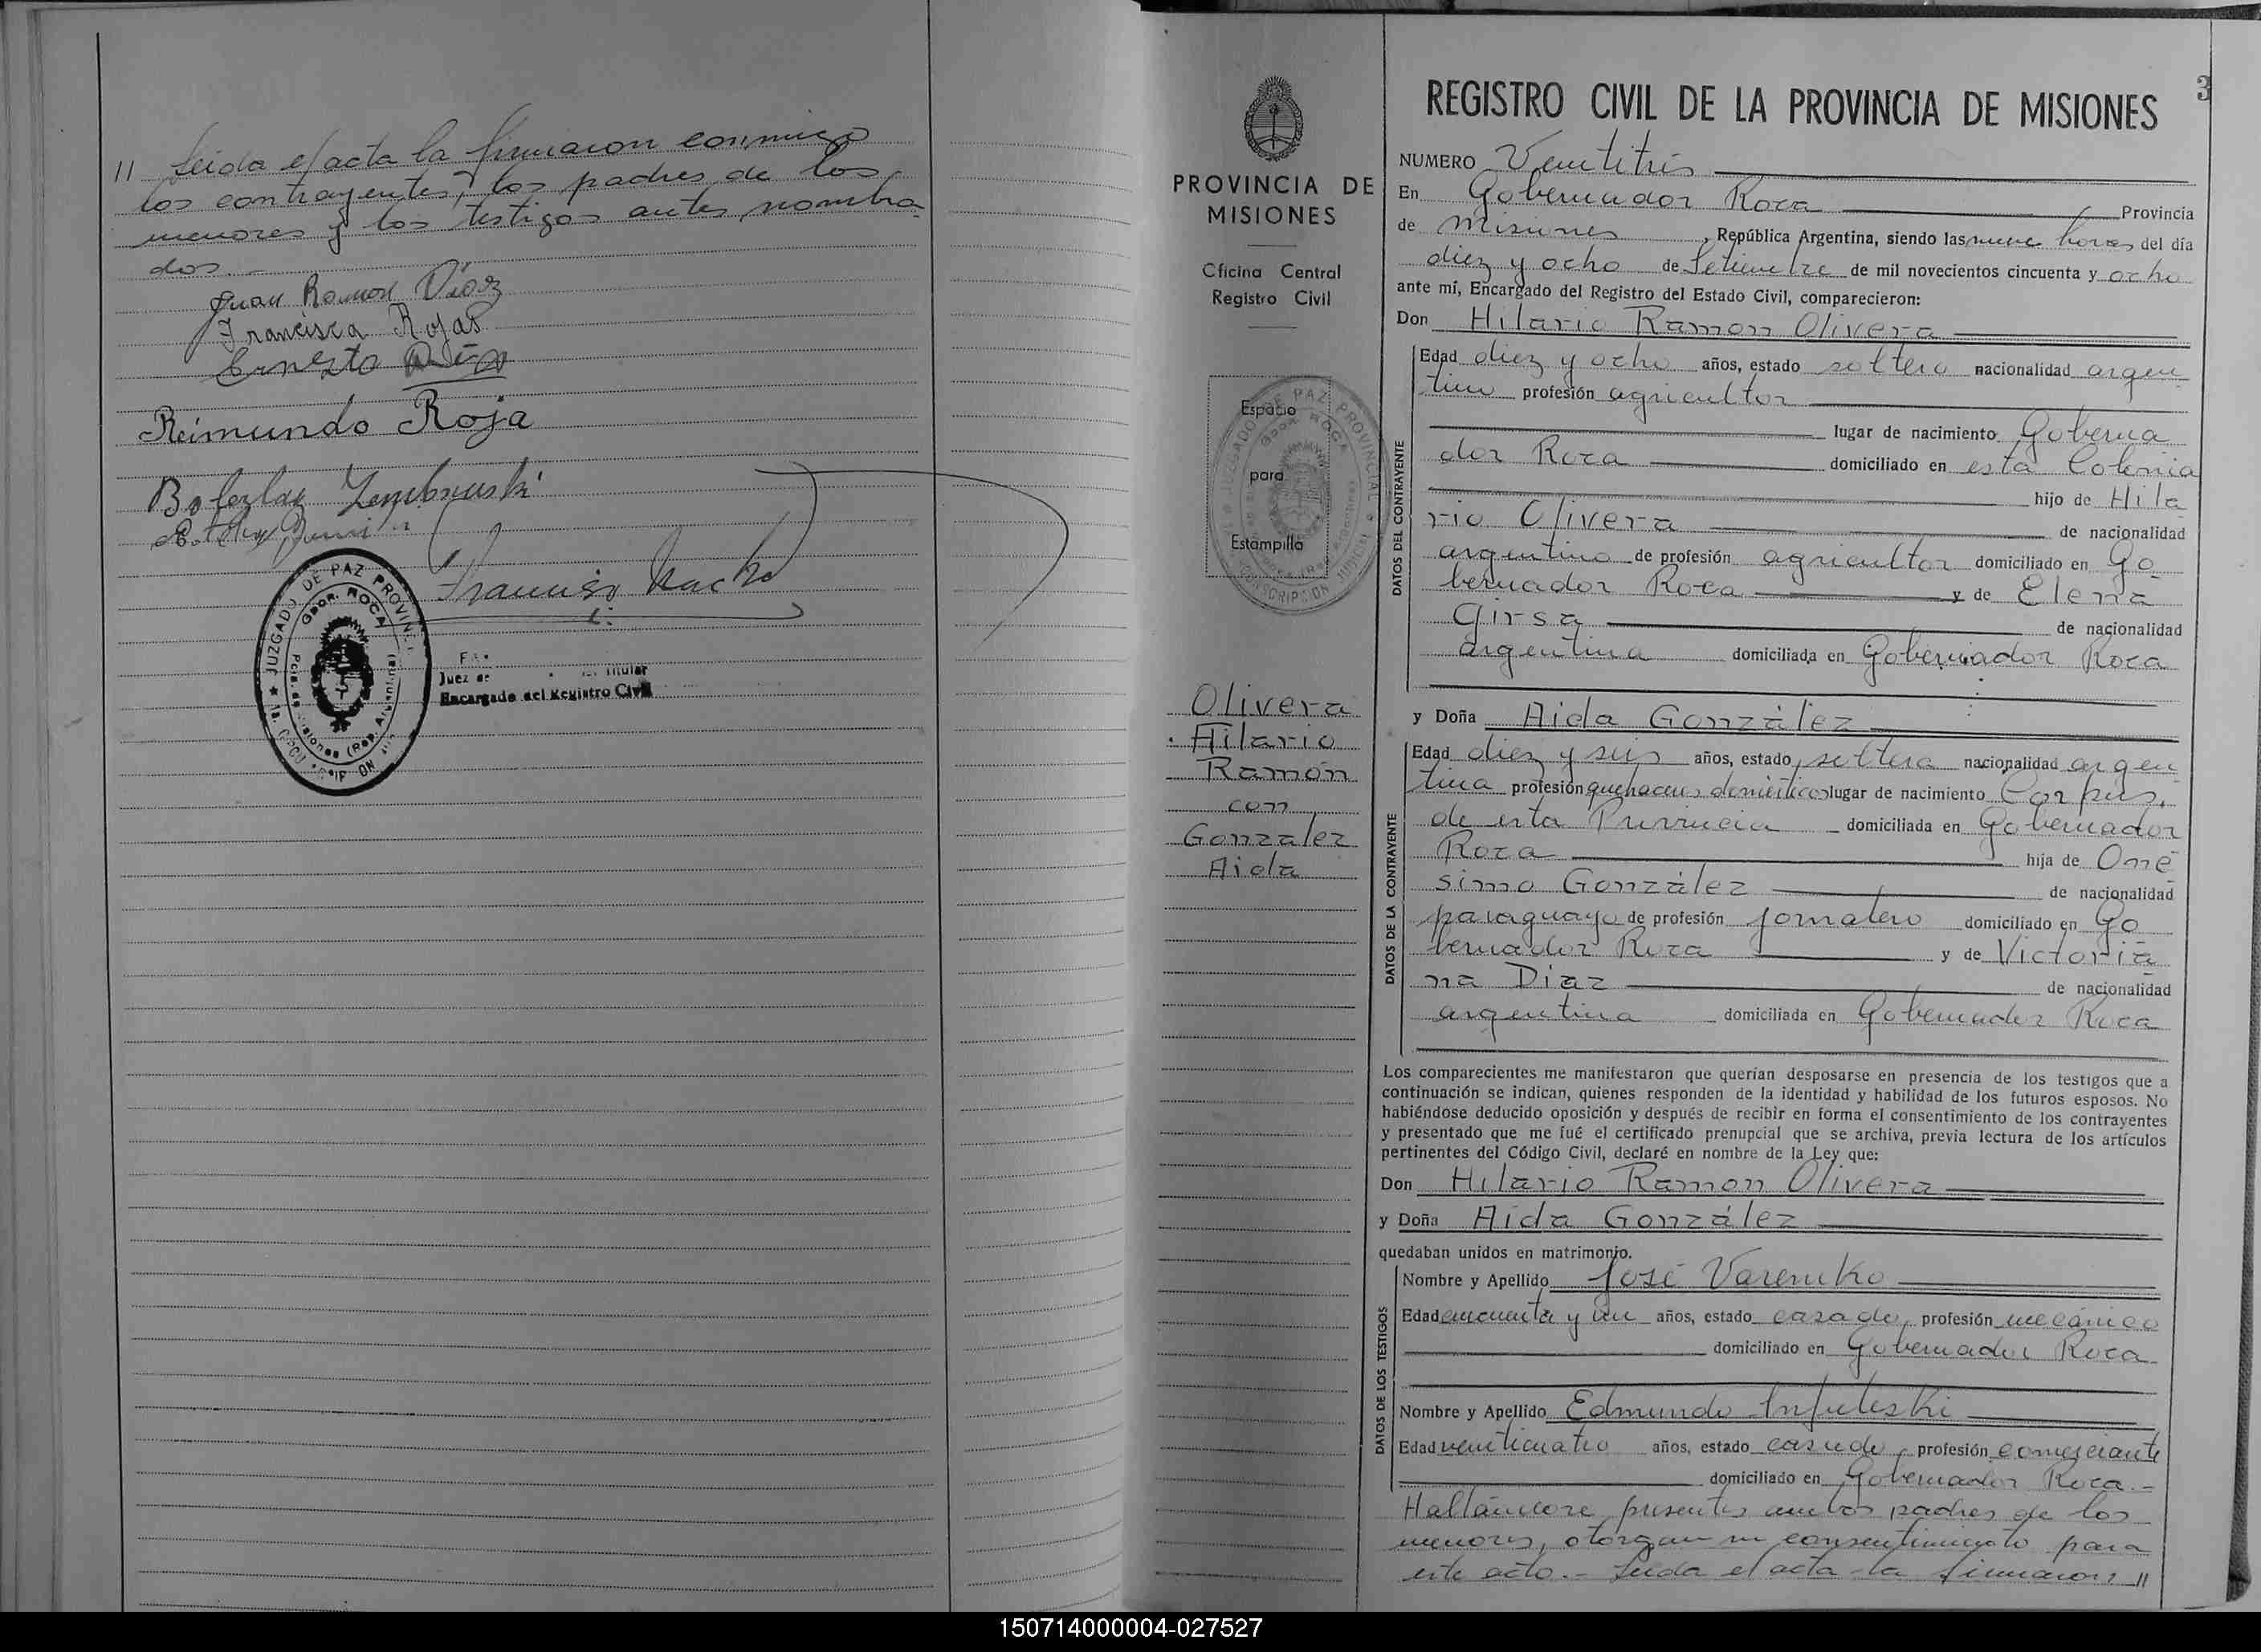 // Leida el acta la firmaron conmigo
los contrayentes, los padres de los
menores y los testigos antes nombra
dos.-
Juan Ramon Diaz
Francisca Rojas
Ernesto
Reimundo Roja
JUZGADO DE PAZ PROVINCIAL
GDOR. ROCA
Juez de
Titular
Encargado del Registro Civil
PROVINCIA DE
MISIONES
Oficina Central
Registro Civil
Espacio
para
Estampilla
Olivera
Hilario
Ramón
con
Gonzalez
Aida
3
REGISTRO CIVIL DE LA PROVINCIA DE MISIONES
NUMERO Veintitrés
En Gobernador Roca Provincia
de Misiones, República Argentina, siendo las nueve horas del día
diez y ocho de Setiembre de mil novecientos cincuenta y ocho
ante mí, Encargado del Registro del Estado Civil, comparecieron:
Don Hilario Ramon Olivera
DATOS DEL CONTRAYENTE
Edad diez y ocho años, estado soltero nacionalidad argen
tino profesión agricultor
lugar de nacimiento Goberna
dor Roca domiciliado en esta Colonia
hijo de Hila
rio Olivera de nacionalidad
argentino de profesión agricultor domiciliado en Go
bernador Roca y de Elena
Girsa de nacionalidad
argentina domiciliada en Gobernador Roca
y Doña Aida González
DATOS DE LA CONTRAYENTE
Edad diez y seis años, estado soltera nacionalidad argen
tina profesión quehaceres domésticos lugar de nacimiento Corpus,
de esta Provincia domiciliada en Gobernador
Roca hija de Oné
simo González de nacionalidad
paraguayo de profesión jornalero domiciliado en Go
bernador Roca y de Victoria
na Diaz de nacionalidad
argentina domiciliada en Gobernador Roca
Los comparecientes me manifestaron que querían desposarse en presencia de los testigos que a
continuación se indican, quienes responden de la identidad y habilidad de los futuros esposos. No
habiéndose deducido oposición y después de recibir en forma el consentimiento de los contrayentes
y presentado que me fué el certificado prenupcial que se archiva, previa lectura de los artículos
pertinentes del Código Civil, declaré en nombre de la Ley que:
Don Hilario Ramon Olivera
y Doña Aida González
quedaban unidos en matrimonio.
DATOS DE LOS TESTIGOS
Nombre y Apellido José Vareniko
Edad cincuenta y un años, estado casado, profesión mecánico
domiciliado en Gobernador Roca
Nombre y Apellido Edmundo
Edad veinticuatro años, estado casado, profesión comerciante
domiciliado en Gobernador Roca.-
Hallándose presentes ambos padres de los
menores, otorgan su consentimiento para
este acto.- Leida el acta la firmaron: //
150714000004-027527